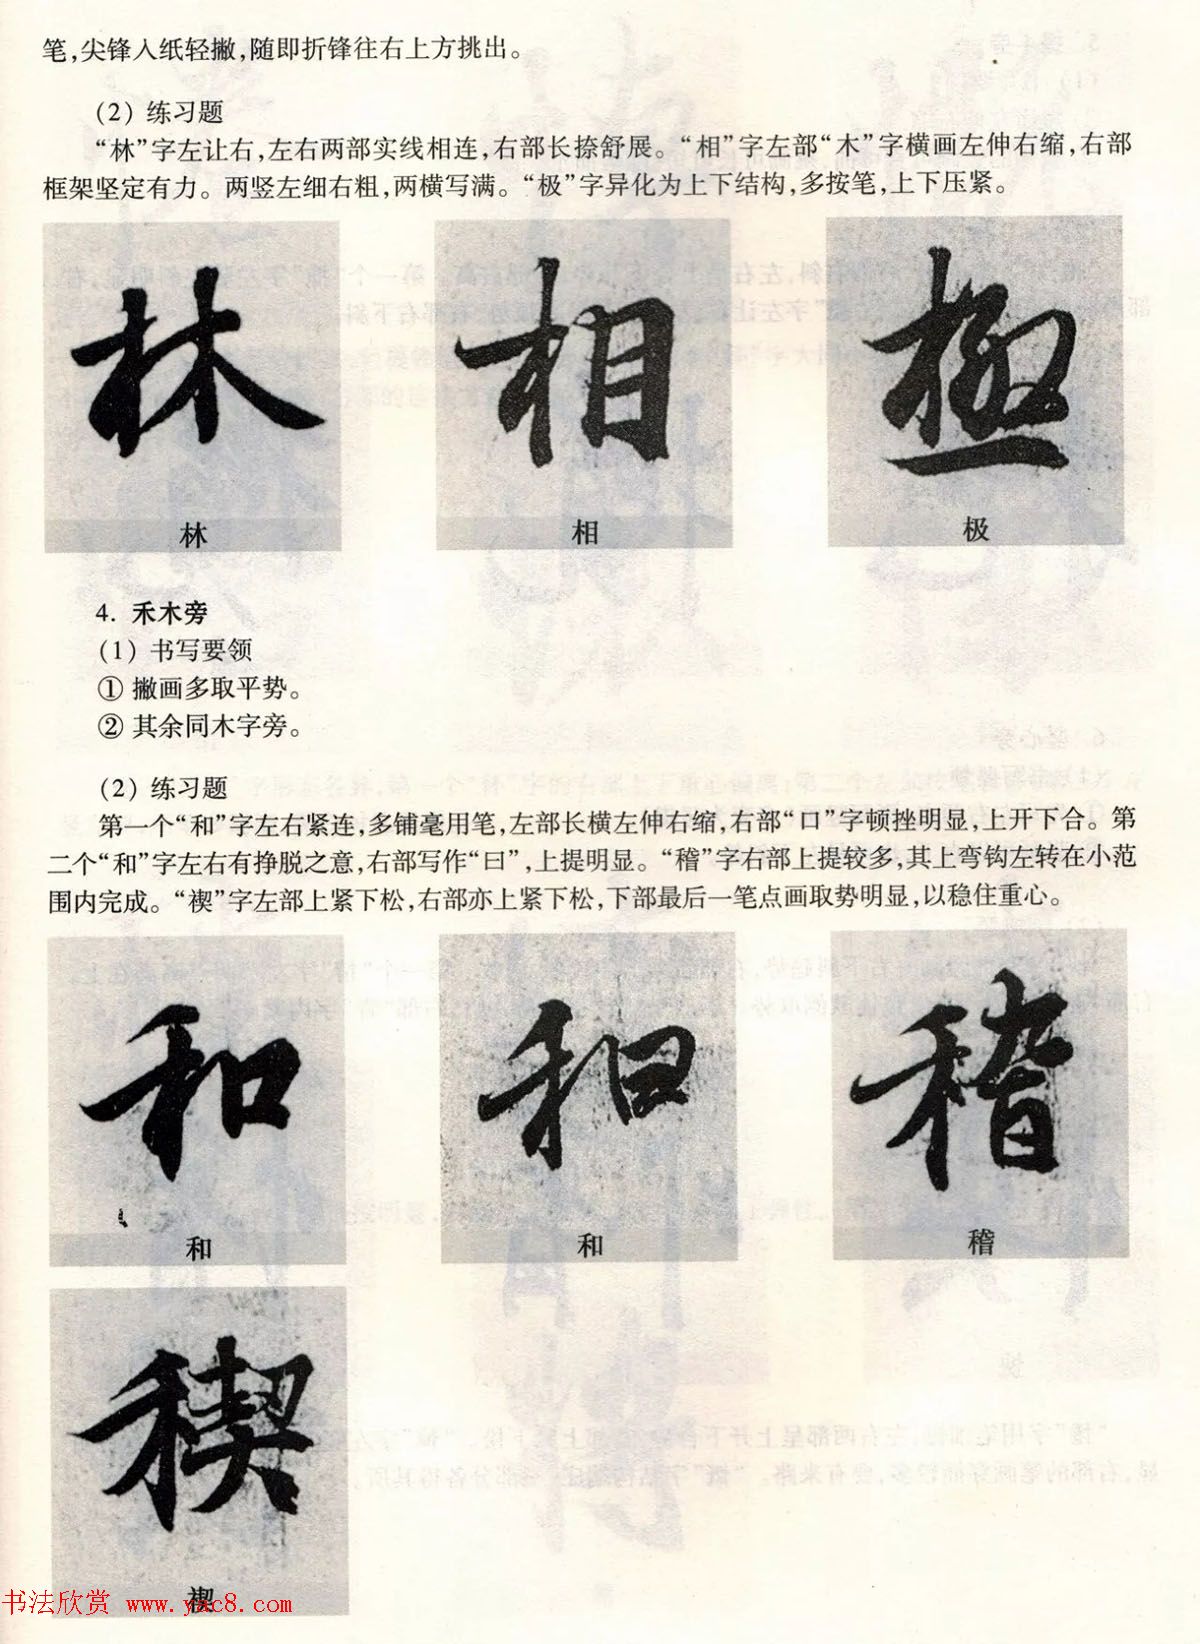 笔,尖锋入纸轻撇,随即折锋往右上方挑出。
(2) 练习题
“林”字左让右,左右两部实线相连,右部长捺舒展。“相”字左部“木”字横画左伸右缩,右部
框架坚定有力。两竖左细右粗,两横写满。“极”字异化为上下结构,多按笔,上下压紧。
林 相 極
林 相 极
4. 禾木旁
(1) 书写要领
① 撇画多取平势。
② 其余同木字旁。
(2) 练习题
第一个“和”字左右紧连,多铺毫用笔,左部长横左伸右缩,右部“口”字顿挫明显,上开下合。第
二个“和”字左右有挣脱之意,右部写作“曰”,上提明显。“稽”字右部上提较多,其上弯钩左转在小范
围内完成。“禊”字左部上紧下松,右部亦上紧下松,下部最后一笔点画取势明显,以稳住重心。
和 和 稽
和 和 稽
禊
禊
书法欣赏 www.yac8.com